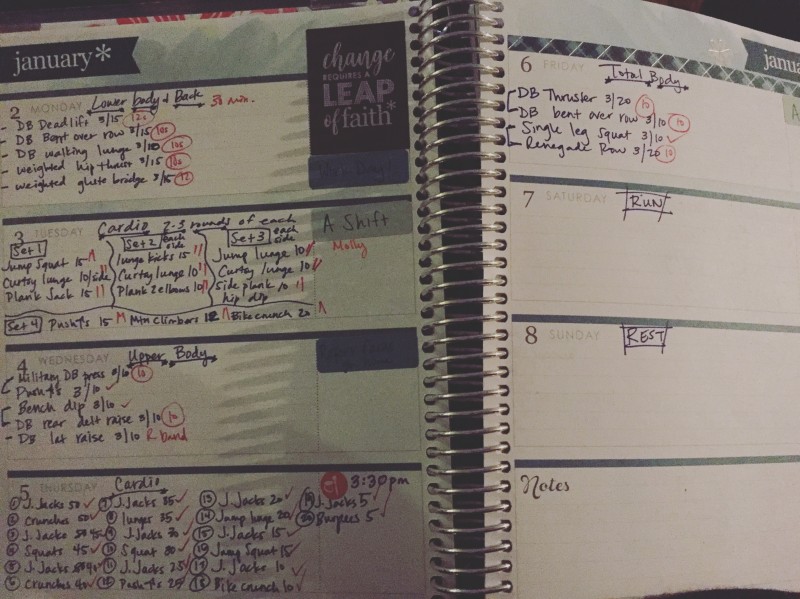 january*
change
REQUIRES A
LEAP
of faith*
2 MONDAY Lower body & Back 38 min.
- DB Deadlift 3/15
- DB Bent over row 3/15 10s
- DB walking lunge 3/20 10s
- weighted hip thrust 3/15 10s
- weighted glute bridge 3/15 12
3 TUESDAY Cardio 2-3 rounds of each
A Shift
Molly
Set 1
Jump Squat 15
Curtsy lunge 10/side
Plank Jack 15
Set 2 each side
lunge kicks 15
Curtsy lunge 10
Plank 2 elbows 10
Set 3 each side
Jump lunge 10
Curtsy lunge 10
Side plank 10
hip dip
Set 4 Push↑s 15 Mtn Climbers 12 Bike crunch 20
4 WEDNESDAY Upper Body
Military DB press 3/10 10
Push↑s 3/10 ✓
Bench dip 3/10 ✓
DB rear delt raise 3/10 10
- DB lat raise 3/10 R band
5 THURSDAY Cardio
3:30pm
① J. Jacks 50 ✓
② Crunches 50 ✓
③ J. Jacks 45 ✓
④ Squats 45 ✓
⑤ J. Jacks 40 ✓
⑥ Crunches 40 ✓
⑦ J. Jacks 35 ✓
⑧ lunges 35 ✓
⑨ J. Jacks 30 ✓
⑩ Squat 30 ✓
⑪ J. Jacks 25 ✓
⑫ Push↑s 25 ✓
⑬ J. Jacks 20 ✓
⑭ Jump lunge 20 ✓
⑮ J. Jacks 15 ✓
⑯ Jump Squat 15 ✓
⑰ J. Jacks 10 ✓
⑱ Bike crunch 10 ✓
⑲ J. Jacks 5 ✓
⑳ Burpees 5 ✓
6 FRIDAY Total Body
DB Thruster 3/20 10
DB bent over row 3/10 10
Single leg Squat 3/10 ✓
Renegade Row 3/20 10
7 SATURDAY RUN
8 SUNDAY REST
Notes
janua